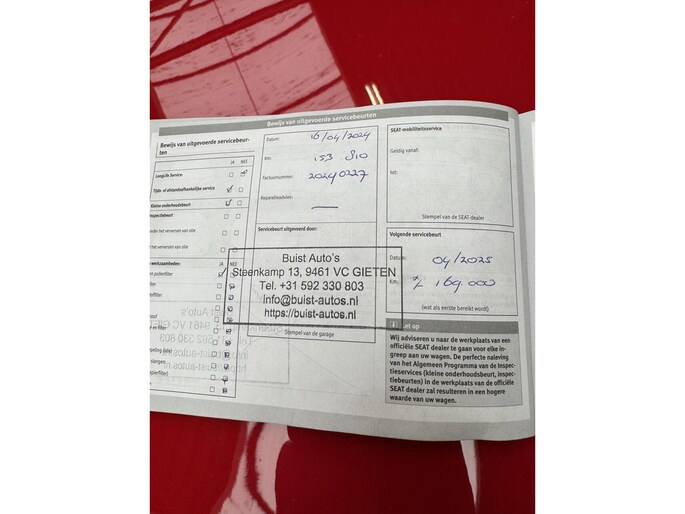 Bewijs van uitgevoerde servicebeurten
Bewijs van uitgevoerde servicebeur-
ten
JA NEE
LongLife Service
Tijds- of afstandsafhankelijke service
Kleine onderhoudsbeurt
verversen van olie
verversen van olie
werkzaamheden: JA NEE
pollenfilter
Datum: 16/04/2024
Km: 153 810
Factuurnummer: 20240227
Reparatieadvies: —
Servicebeurt uitgevoerd door:
Buist Auto's
Steenkamp 13, 9461 VC GIETEN
Tel. +31 592 330 803
info@buist-autos.nl
https://buist-autos.nl
Stempel van de garage
SEAT-mobiliteitsservice
Geldig vanaf:
tot:
Stempel van de SEAT-dealer
Volgende servicebeurt
Datum: 04/2025
Km: 169.000
(wat als eerste bereikt wordt)
Let op
Wij adviseren u naar de werkplaats van een
officiële SEAT dealer te gaan voor elke in-
greep aan uw wagen. De perfecte naleving
van het Algemeen Programma van de Inspec-
tieservices (kleine onderhoudsbeurt, inspec-
tiebeurten) in de werkplaats van de officiële
SEAT dealer zal resulteren in een hogere
waarde van uw wagen.